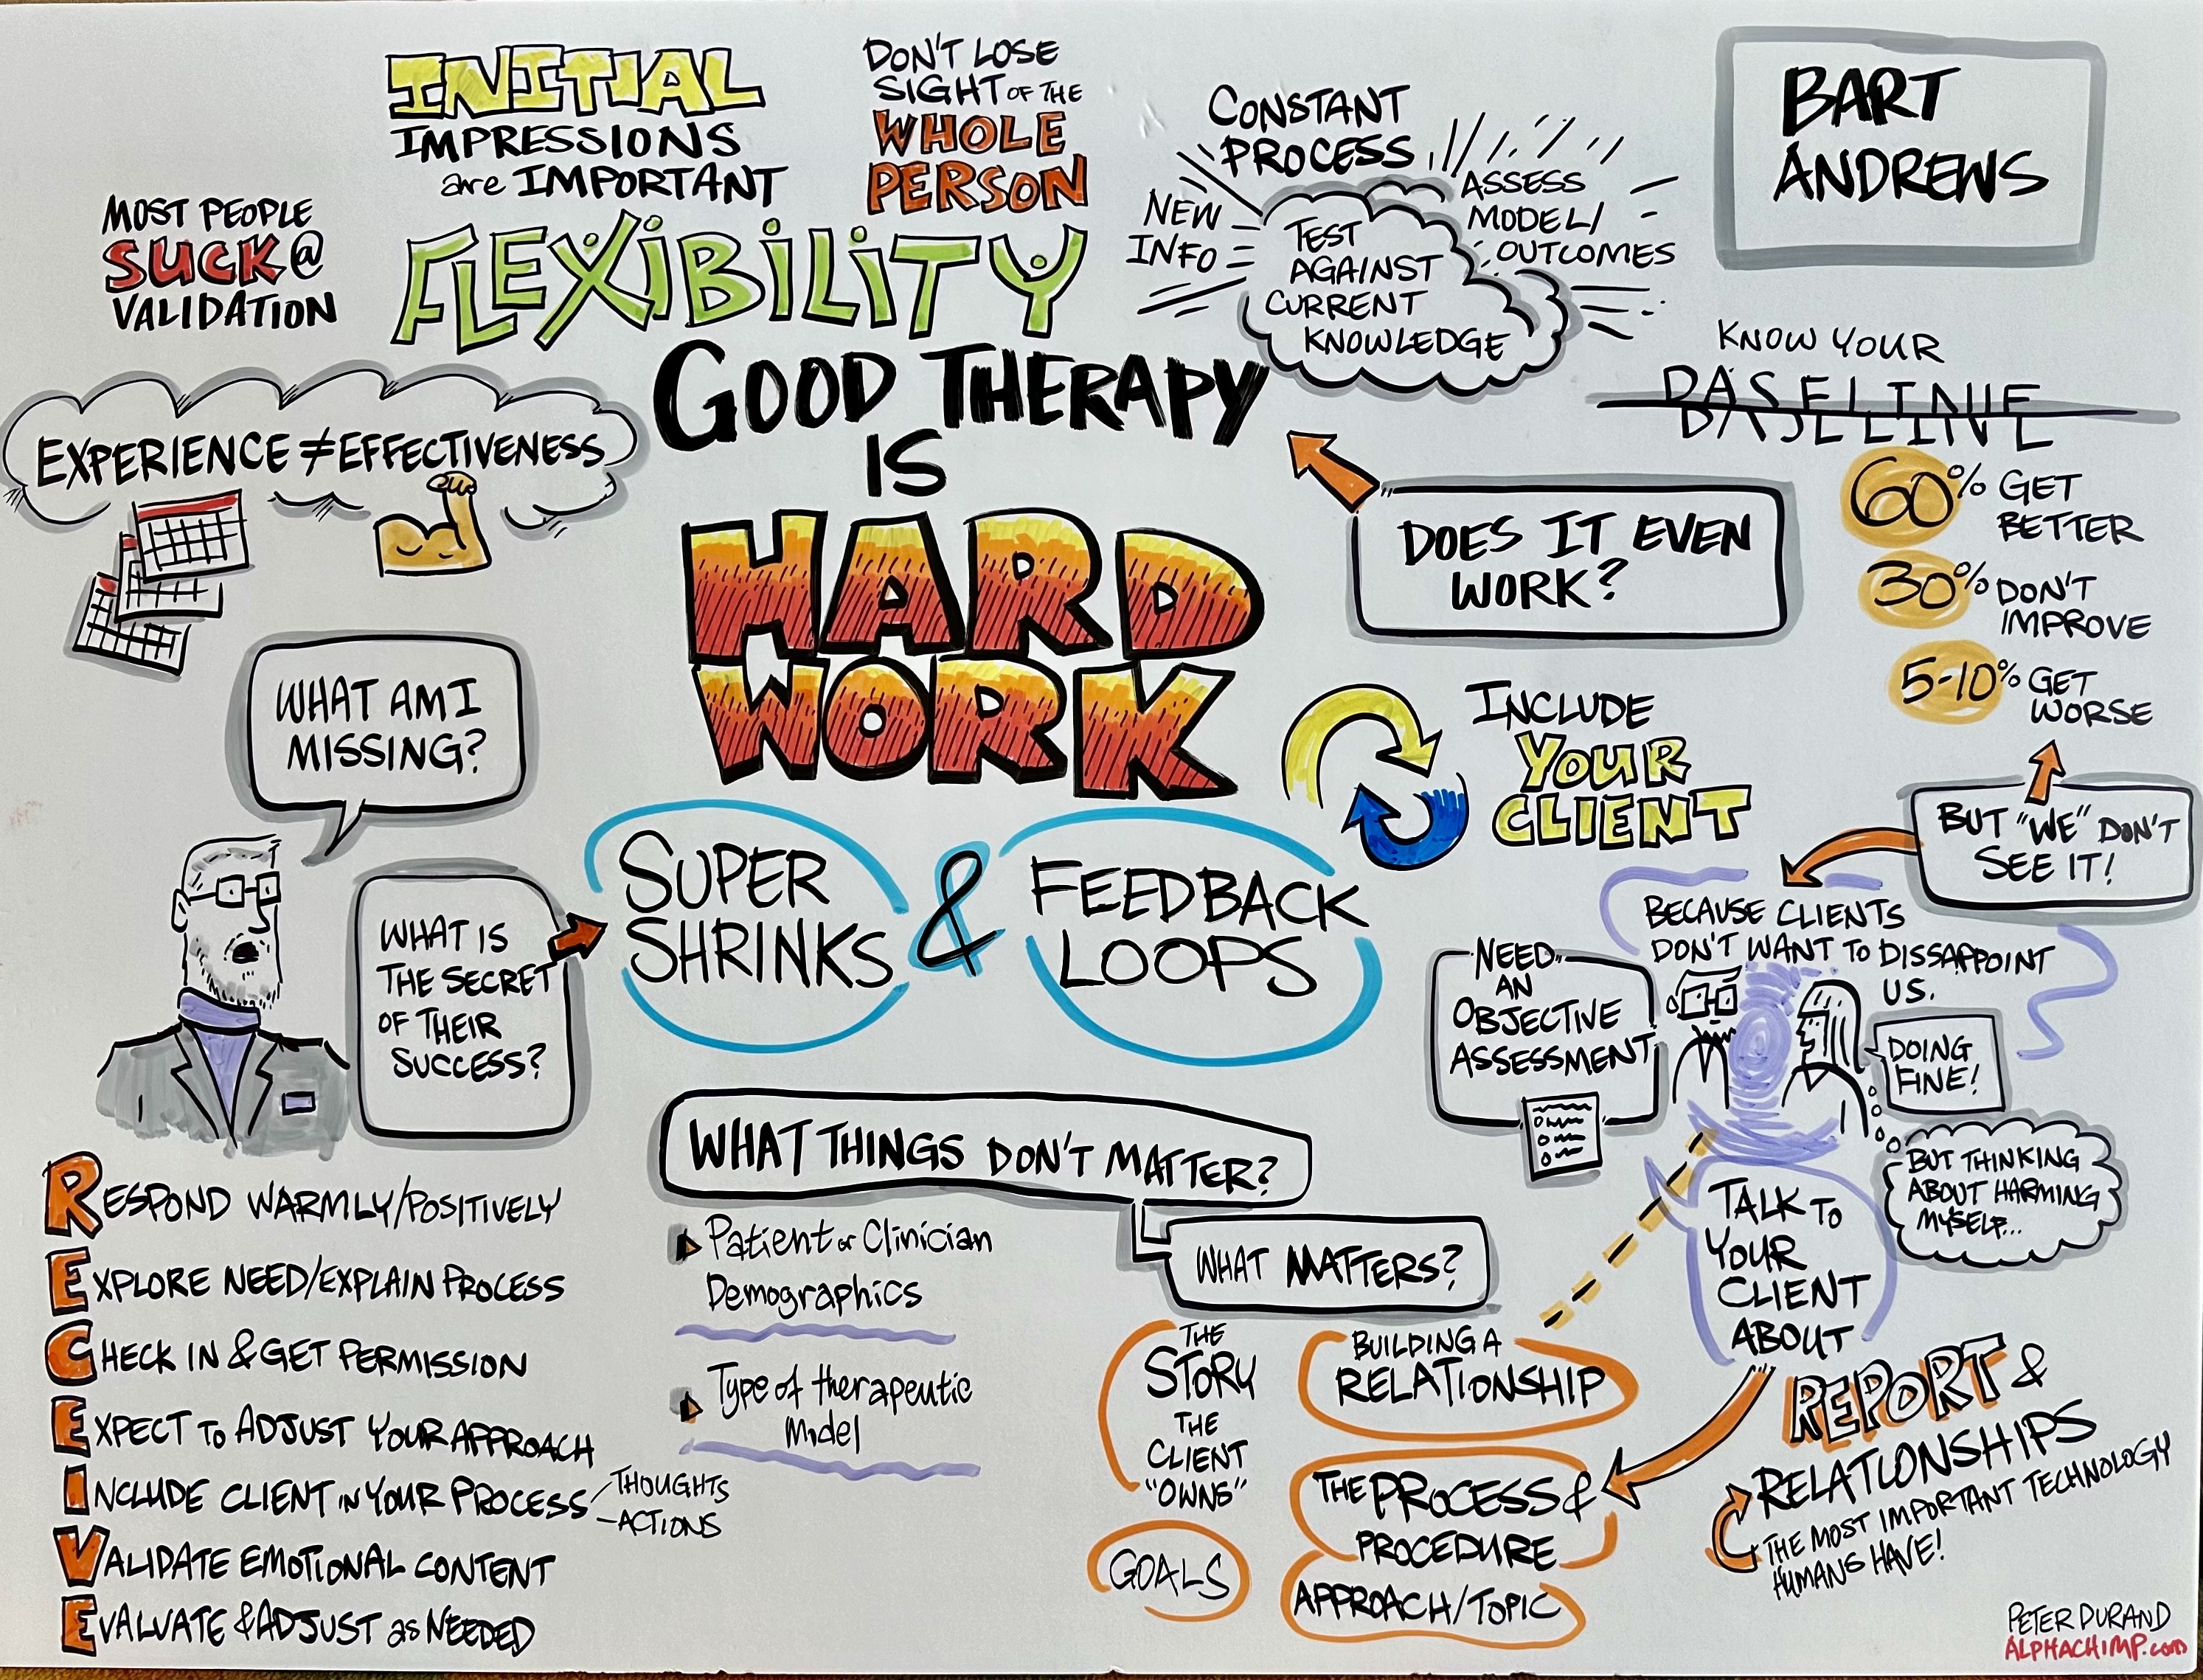 INITIAL
IMPRESSIONS
are IMPORTANT
DON'T LOSE
SIGHT OF THE
WHOLE
PERSON
MOST PEOPLE
SUCK @
VALIDATION
FLEXIBILITY
CONSTANT
PROCESS
NEW
INFO
TEST
AGAINST
CURRENT
KNOWLEDGE
ASSESS
MODEL/
OUTCOMES
BART
ANDREWS
KNOW YOUR
BASELINE
60% GET
BETTER
30% DON'T
IMPROVE
5-10% GET
WORSE
BUT "WE" DON'T
SEE IT!
GOOD THERAPY
IS
HARD
WORK
DOES IT EVEN
WORK?
EXPERIENCE ≠ EFFECTIVENESS
WHAT AM I
MISSING?
WHAT IS
THE SECRET
OF THEIR
SUCCESS?
SUPER
SHRINKS
&
FEEDBACK
LOOPS
INCLUDE
YOUR
CLIENT
BECAUSE CLIENTS
DON'T WANT TO DISSAPPOINT
US.
NEED
AN
OBJECTIVE
ASSESSMENT
DOING
FINE!
BUT THINKING
ABOUT HARMING
MYSELF...
TALK TO
YOUR
CLIENT
ABOUT
REPORT &
RELATIONSHIPS
THE MOST IMPORTANT TECHNOLOGY
HUMANS HAVE!
WHAT THINGS DON'T MATTER?
Patient or Clinician
Demographics
Type of therapeutic
Model
WHAT MATTERS?
THE
STORY
THE
CLIENT
"OWNS"
GOALS
BUILDING A
RELATIONSHIP
THE PROCESS &
PROCEDURE
APPROACH/TOPIC
RESPOND WARMLY/POSITIVELY
EXPLORE NEED/EXPLAIN PROCESS
CHECK IN & GET PERMISSION
EXPECT TO ADJUST YOUR APPROACH
INCLUDE CLIENT IN YOUR PROCESS
THOUGHTS
ACTIONS
VALIDATE EMOTIONAL CONTENT
EVALUATE & ADJUST as NEEDED
PETER DURAND
ALPHACHIMP.com